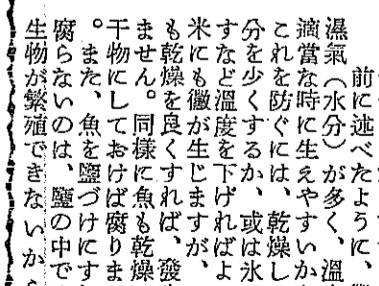 前に述べたように、
濕氣（水分）が多く、溫
適當な時に生えやすいか
これを防ぐには、乾燥し
分を少くするか、或は氷
すなど溫度を下げればよ
米にも黴が生じますが、
も乾燥を良くすれば、發
ません。同様に魚も乾燥
干物にしておけば腐りま
。また、魚を鹽づけにす
腐らないのは、鹽の中で
生物が繁殖できないか